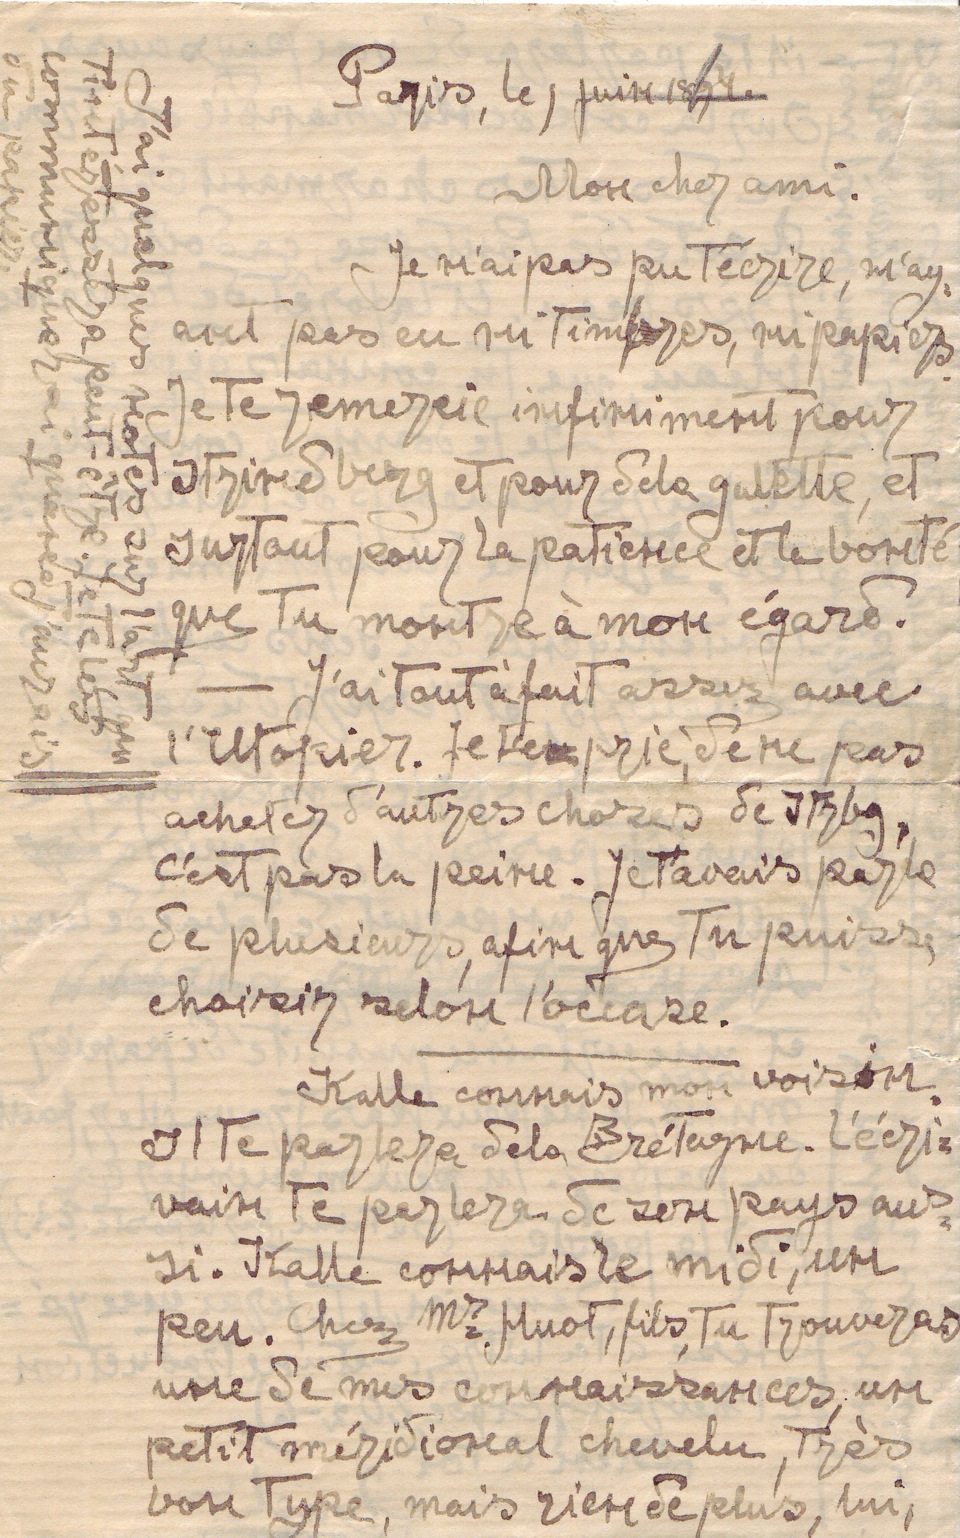 Paris, le 1 juin 18
Mon cher ami.
Je n'ai pas pu t'écrire, n'ay-
ant pas eu ni timbres, ni papiers.
Je te remercie infiniment pour
Strindberg et pour de la galette, et
surtout pour la patience et la bonté
que tu montre à mon égard.
— J'ai tout à fait assez avec
l'Utopier. Je t'en prie, de ne pas
acheter d'autres choses de Strbg,
c'est pas la peine. Je t'avais parle
de plusieurs, afin que tu puisse
choisir selon l'occase.
Kalle connais mon voisin.
Il te parlera de la Brétagne. L'écri=
vain te parlera de son pays aus=
si. Kalle connais le midi, un
peu. Chez Mr. Huot, fils, tu trouveras
une de mes connaissances, un
petit méridional chevelu, très
bon type, mais rien de plus, lui,
J'ai quelques notes sur l'art qui
t'intéressera peut-être. Je te les
communiquerai quand j'aurais
du papier.